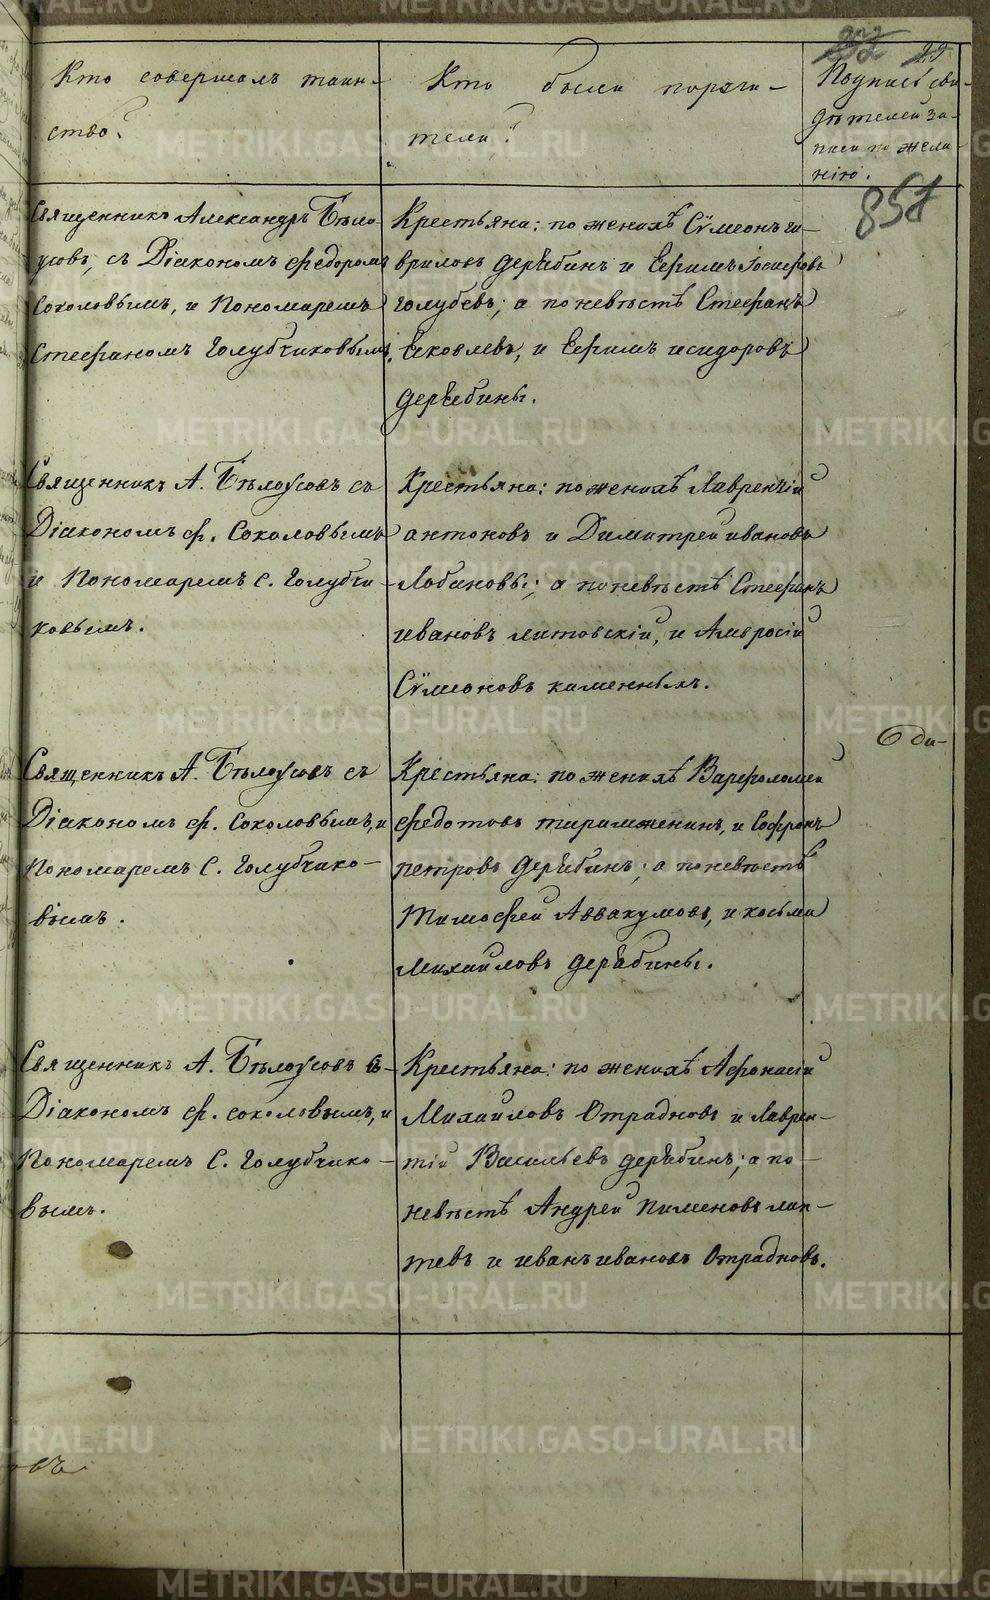 Кто совершалъ таин-
ство?
Кто были поручи-
тели?
Подпись сви-
дѣтелей за-
писи по жела-
нію.
85
Священникъ Александръ Бѣло-
усовъ, съ Діакономъ Федоромъ
Соколовымъ, и Пономаремъ
Стефаномъ Голубчиковымъ.
Крестьяна: по женихѣ Сѵмеонъ га-
вриловъ Дерябинъ и Ефимъ Іосифовъ
голубевъ; а по невѣстѣ Стефанъ
Яковлевъ, и Ефимъ исидоровъ
Дерябины.
Священникъ А. Бѣлоусовъ съ
Діакономъ Ф. Соколовымъ
и Пономаремъ С. Голубчи-
ковымъ.
Крестьяна: по женихѣ Лаврентій
антоновъ и Димитрей ивановъ
Лобановы; а по невѣстѣ Стефанъ
ивановъ литовскій, и Амвросій
Сѵмеоновъ каменныхъ.
Священникъ А. Бѣлоусовъ съ
Діакономъ Ф. Соколовымъ, и
Пономаремъ С. Голубчико-
вымъ.
Крестьяна: по женихѣ Варфоломей
Федотовъ и Софронъ
петровъ Дерябинъ; а по невѣстѣ
Тимофей Аввакумовъ, и косьма
Михайловъ Дерябины.
6 ди-
Священникъ А. Бѣлоусовъ съ
Діакономъ Ф. соколовымъ, и
Пономаремъ С. Голубчико-
вымъ.
Крестьяна: по женихѣ Афонасій
Михайловъ Отрадновъ и Лаврен-
тій Васильевъ Дерябинъ; а по
невѣстѣ Андрей Пименовъ лап-
тевъ и иванъ ивановъ Отрадновъ.
METRIKI.GASO-URAL.RU